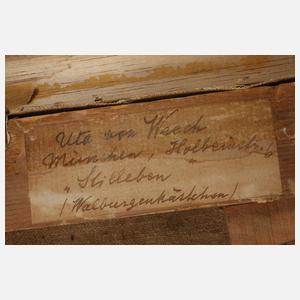 Uta von Weech
München, Holbeinstr. 6
„Stilleben"
(Walburgenkästchen)